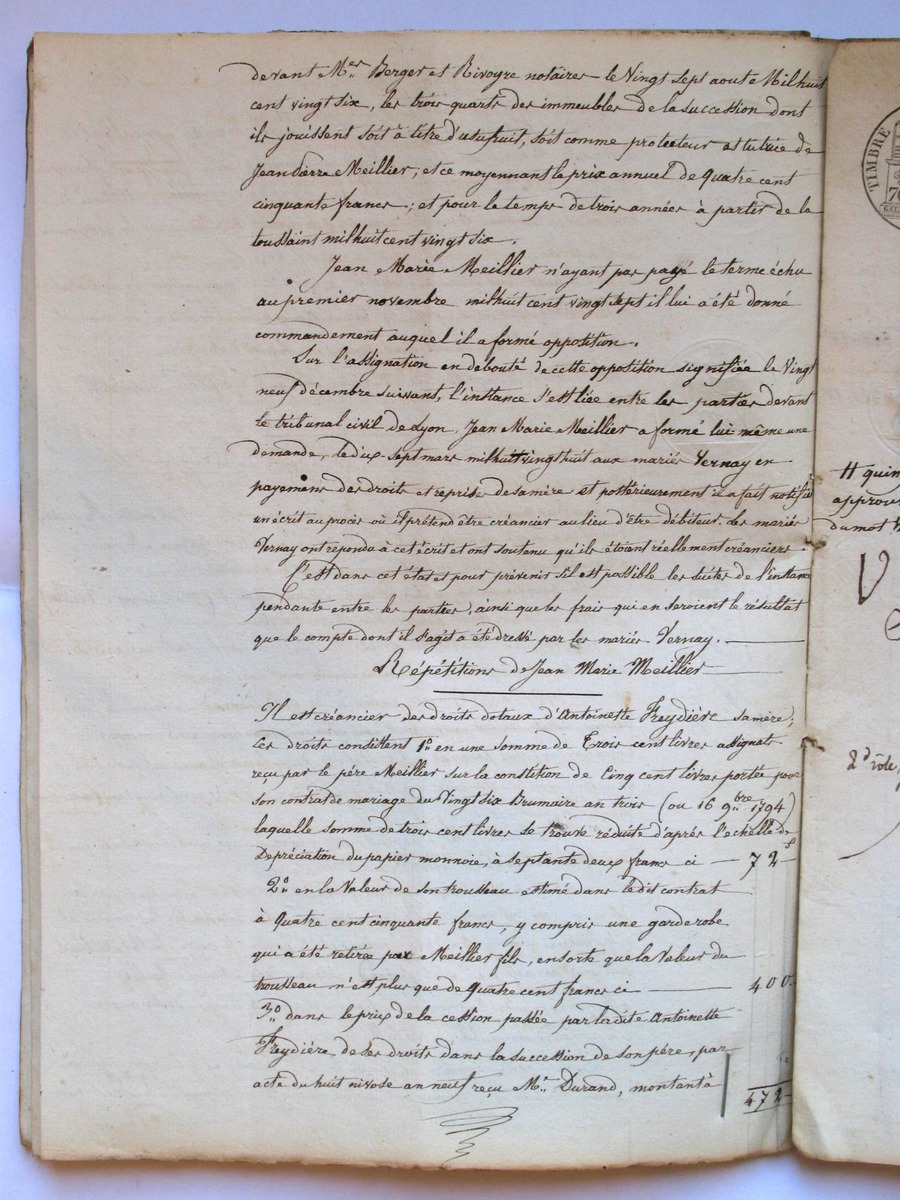 devant M.es Berger et Rivoyre notaires le Vingt sept aoust Milhuit
cent vingt six, les trois quarts des immeubles de la succession dont
ils jouissent soit à titre d'usufruit, soit comme protecteur et tutrice de
Jean Pierre Meillier, et ce moyennant le prix annuel de Quatre cent
cinquante francs; et pour le temps de trois années à partir de la
toussaint milhuit cent vingt six.
Jean Marie Meillier n'ayant pas payé le terme échu
au premier novembre milhuit cent vingt sept il lui a été donné
commandement auquel il a formé opposition.
Sur l'assignation en debouté de cette opposition signifiée le Vingt
neuf décembre suivant, l'instance s'est liée entre les parties devant
le tribunal civil de Lyon. Jean Marie Meillier a formé lui même une
demande, le dix-sept mars milhuit vingt huit aux mariés Vernay en
payement des droits et reprises de sa mère et postérieurement il a fait notifié
un écrit au procès où il prétend être créancier au lieu d'être débiteur. Les mariés
Vernay ont repondu à cet écrit et ont soutenu qu'ils étoient réellement créanciers.
C'est dans cet état et pour prévenir s'il est possible les suites de l'instance
pendante entre les parties, ainsi que les frais qui en seroient le résultat
que le compte dont il s'agit a été dressé par les mariés Vernay.
Répétitions de Jean Marie Meillier
Il est créancier des droits dotaux d'Antoinette Freydière sa mère;
Ces droits consistent 1o. en une somme de Trois cent livres assignats
reçu par le père Meillier sur la constitution de Cinq cent livres portée par
son contrat de mariage du Vingt six Brumaire an trois (ou 16 9.bre 1794)
laquelle somme de trois cent livres se trouve réduite d'après l'echelle de
Depréciation du papier monnoie, à septante deux francs ci — 72 f
2o. en la Valeur de son trousseau estimé dans le dit contrat
à Quatre cent cinquante francs, y compris une garderobe
qui a été retirée par Meillier fils, en sorte que la Valeur du
trousseau n'est plus que de Quatre cent francs ci — 400.
3o. dans le prix de la cession passée par ladite Antoinette
Freydière de ses droits dans la succession de son père, par
acte du huit nivose an neuf reçu M.e Durand, montant à
472
TIMBRE
H quin
approuv
du mot
2d rôle